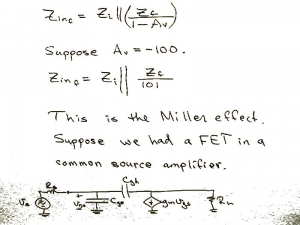 Zinc = Zi || (Zc / 1 - Av)
Suppose Av = -100.
Zinc = Zi || Zc / 101
This is the Miller effect.
Suppose we had a FET in a
common source amplifier.
Cgd
Vgs Cgs gmVgs